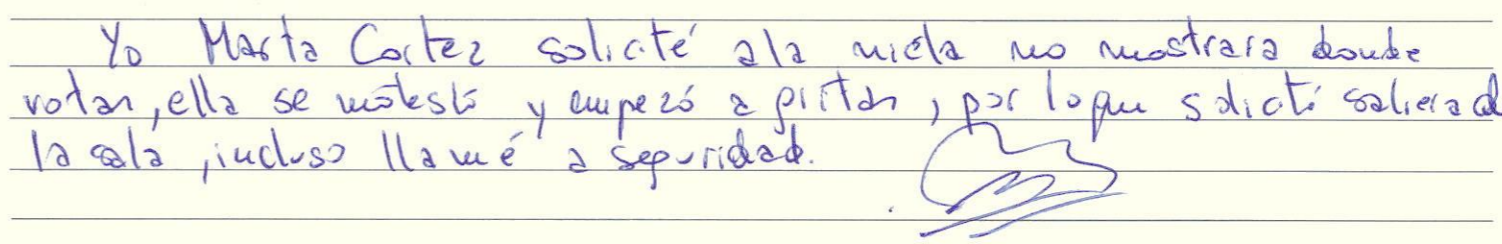 Yo Marta Cortez solicité a la nieta no mostrara donde
votar, ella se molestó y empezó a gritar, por lo que solicité saliera de
la sala, incluso llamé a seguridad.